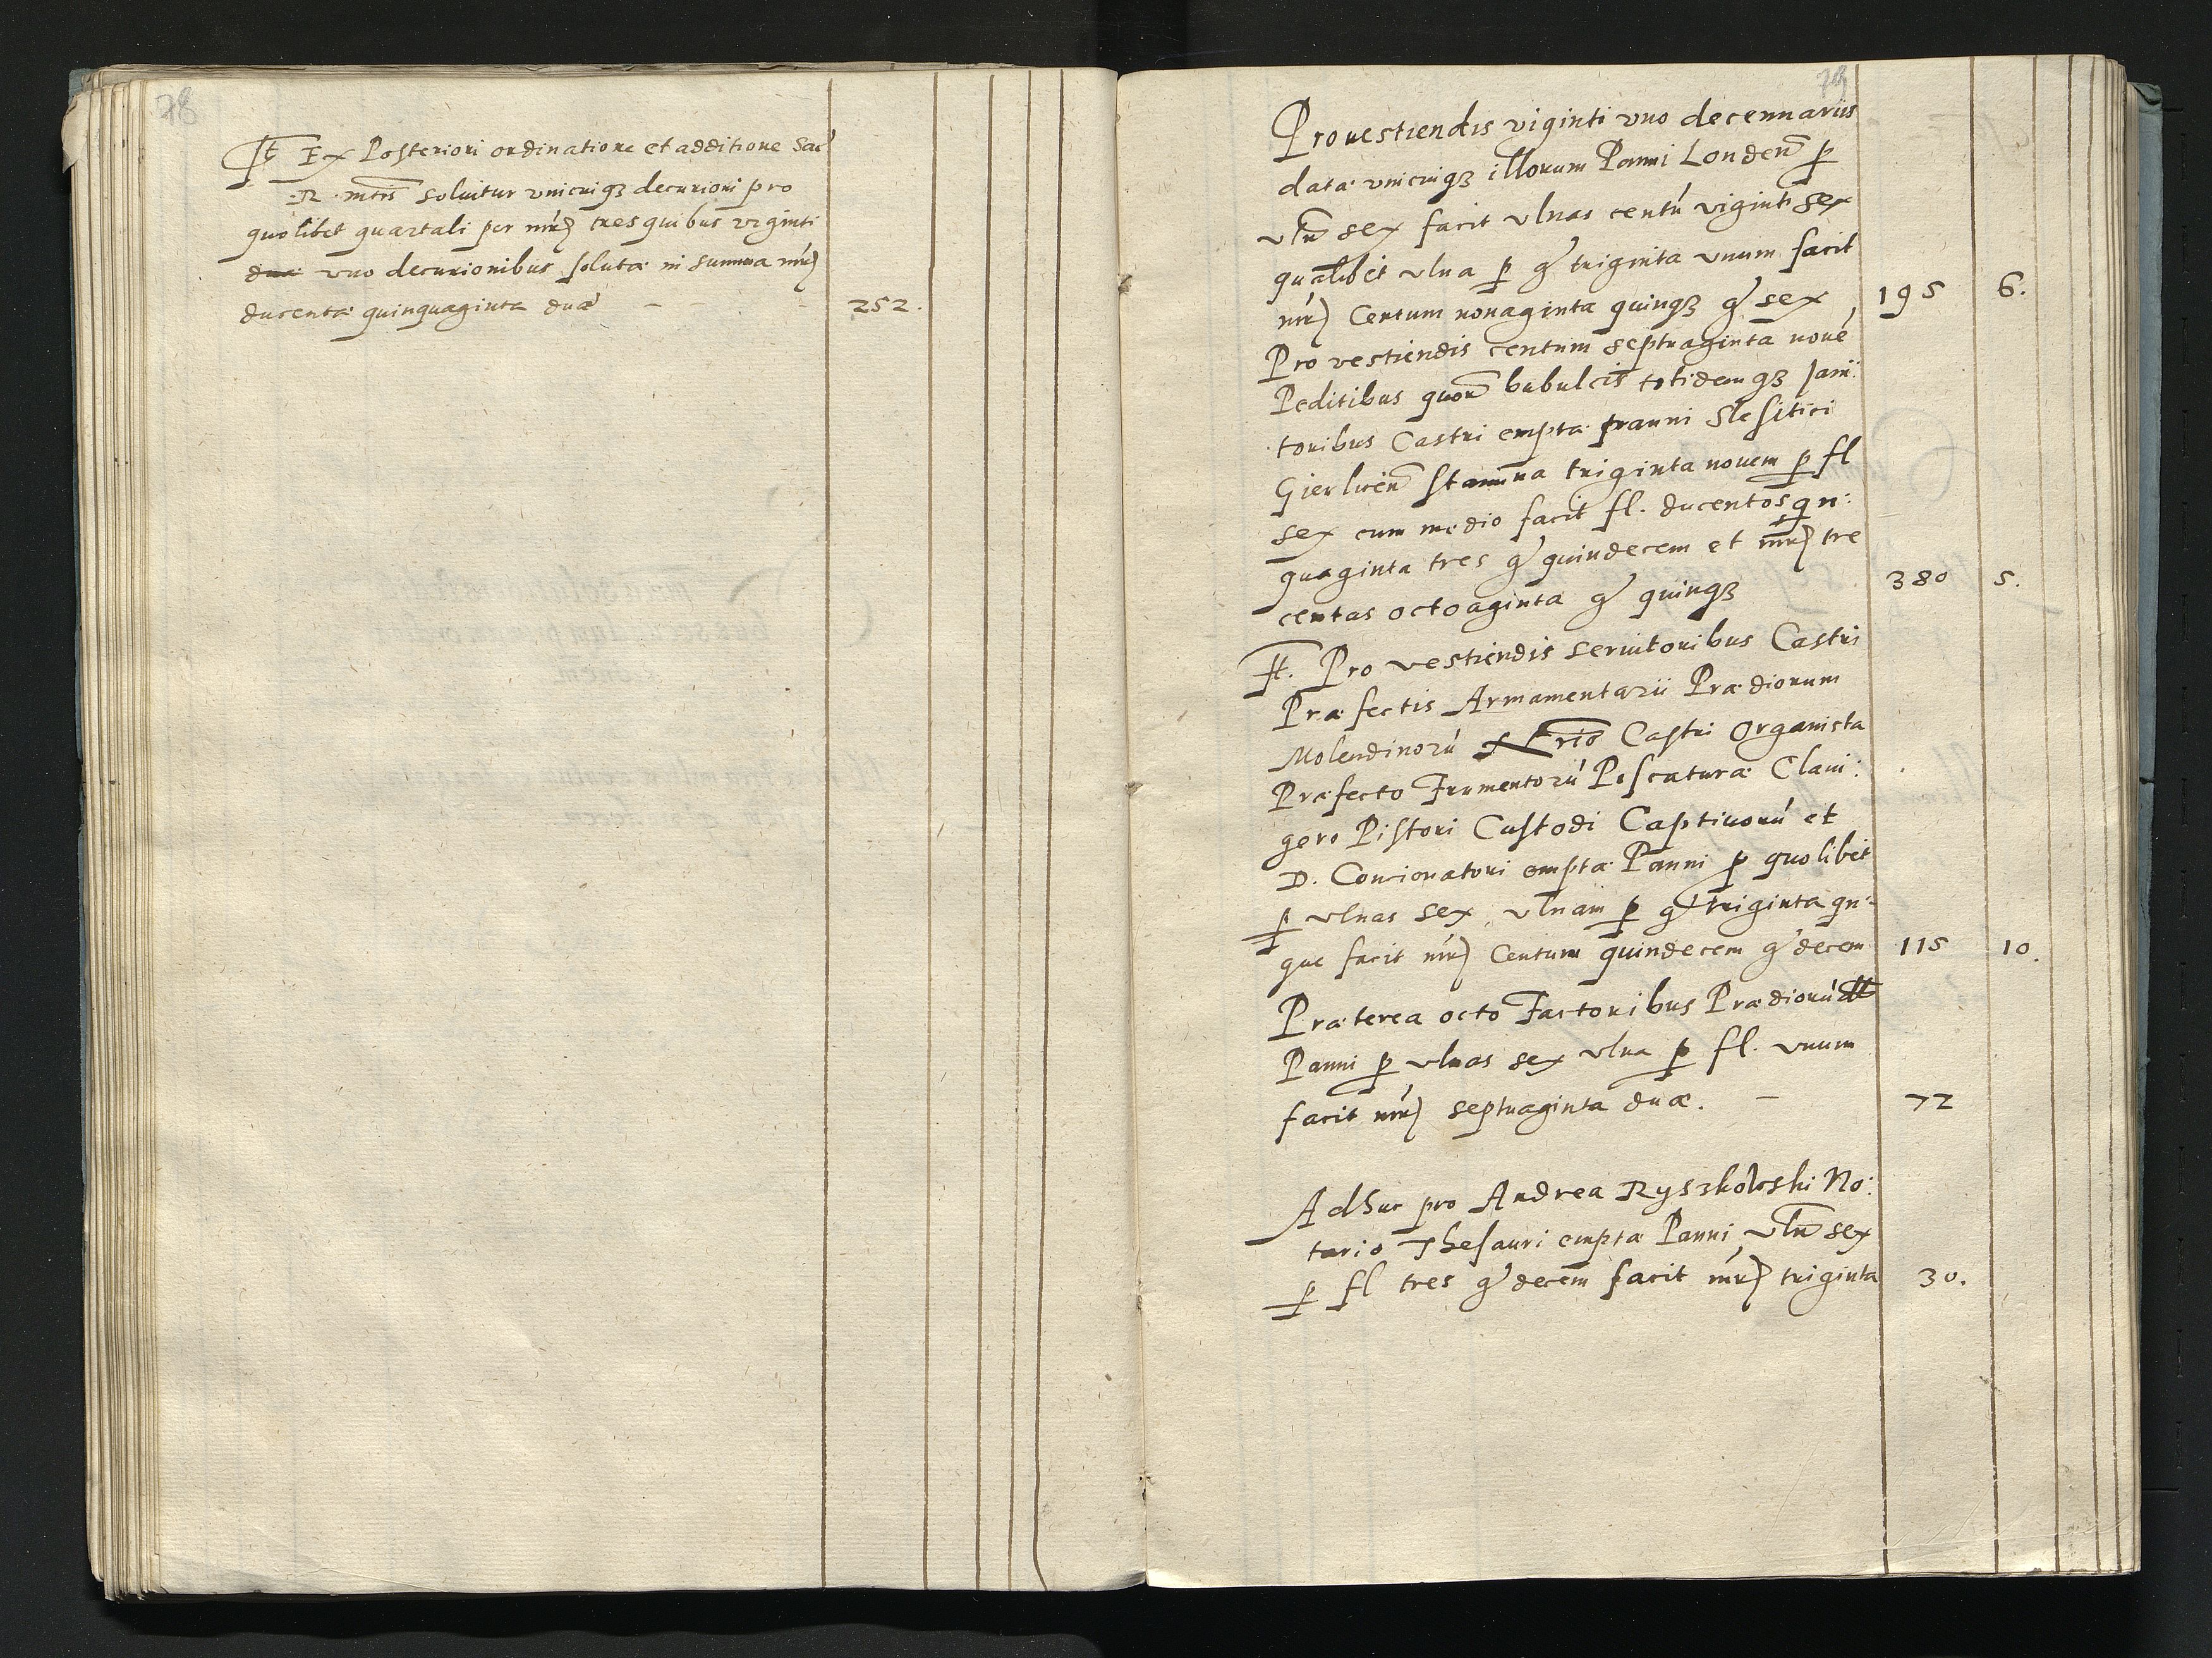 78
It Ex Posteriori ordinatione et additione Sac
R. mtis soluitur vnicuiqꝫ decurioni pro
quolibet quartali per mrc tres quibus viginti
duc vno decurionibus soluta in summa mrc
ducenta quinquaginta duæ - - - 252.
79
Prouestiendis viginti vno decennariis
data vnicuiqꝫ illorum Panni Londen p
vln sex facit vlnas centú viginti sex
qualibet vlna p gr triginta vnum facit
mrc Centum nonaginta quinqꝫ gr sex 195 6.
Pro vestiendis centum septuaginta noué
Peditibus quor bubulcis totidemqꝫ Jani:
toribus Castri empta panni Slesitici
Gierlicen stamina triginta nouem p fl
sex cum medio facit fl. ducentos qn:
quaginta tres gr quindecem et mrc tre
centas octoaginta gr quinqꝫ 380 5.
It. Pro vestiendis seruitoribus Castri
Præfectis Armamentarii Prædiorum
Molendinorú Castri Organista
Præfecto Frumentorú Piscaturæ Claui:
gero Pistori Custodi Captiuorú et
D. Concionatori empta Panni p quolibet
p vlnas sex, vlnam p gr triginta qn:
que facit mrc Centum quindecem gr decem 115 10.
Præterea octo Factoribus Prædiorú
Panni p vlnas sex vlna p fl. vnum
facit mrc septuaginta duæ. - 72
Adhuc pro Andrea Ryszkowski No:
tario Thesauri empta Panni vln sex
p fl tres gr decem facit mrc triginta 30.